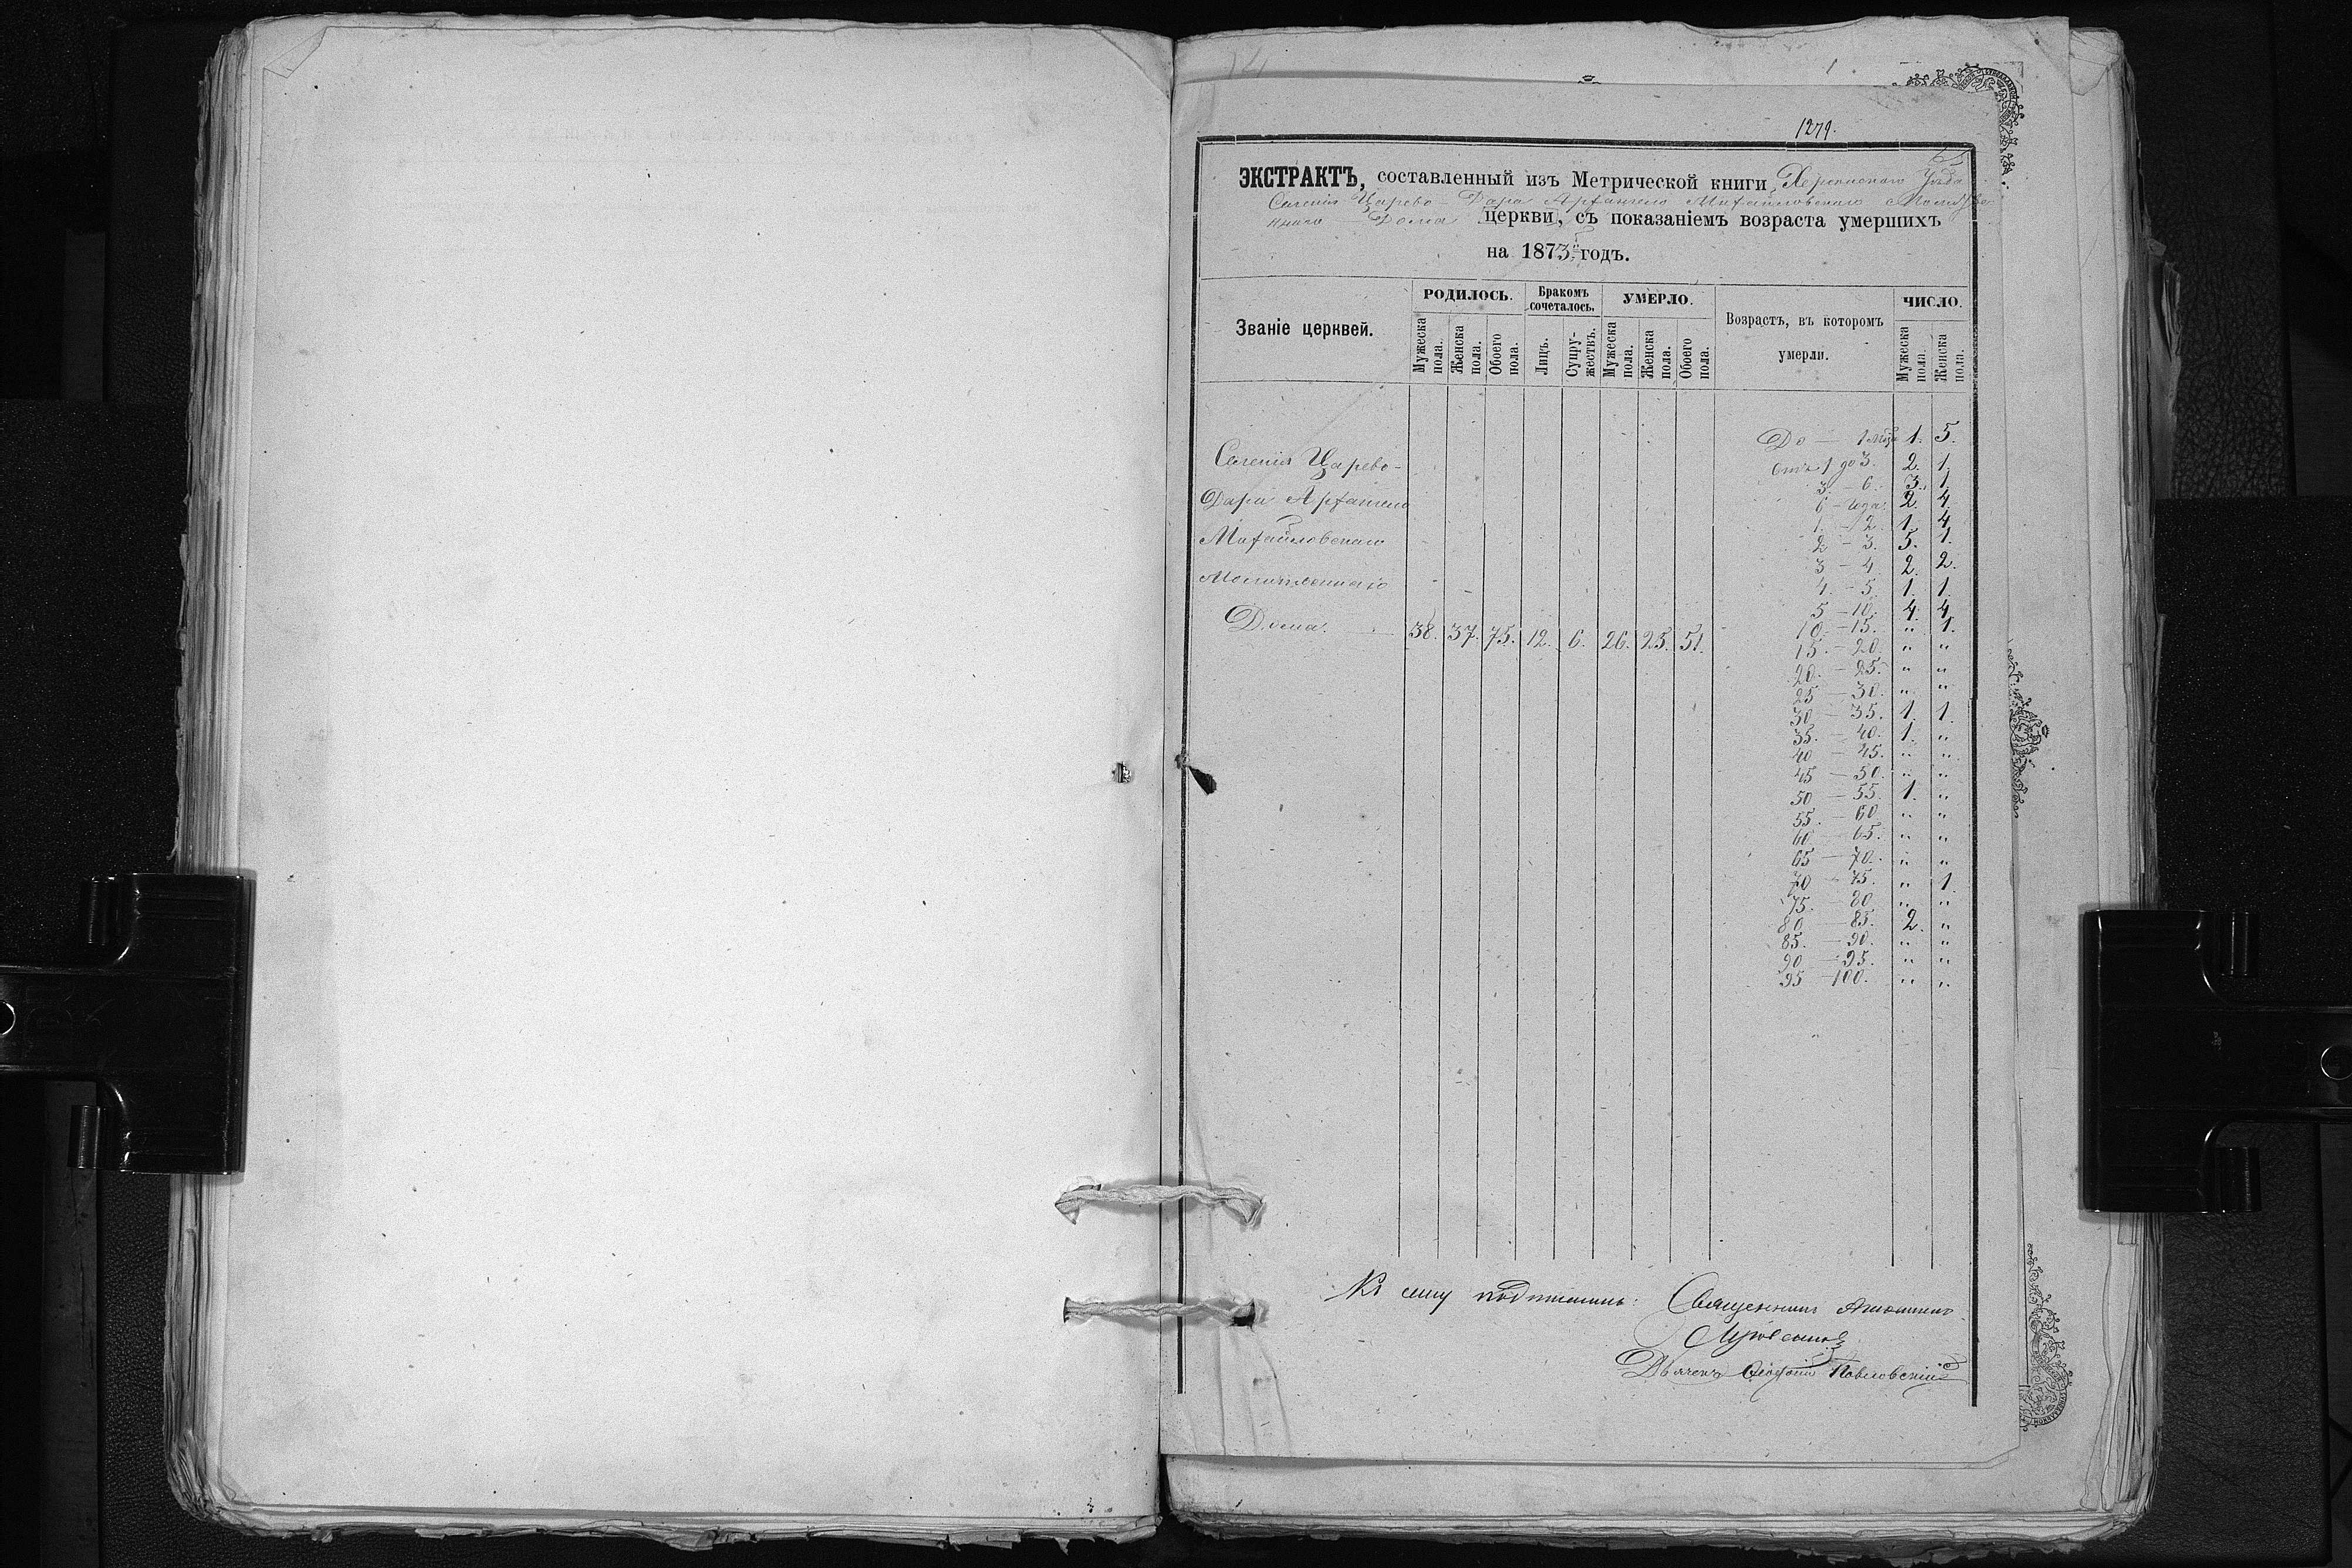 1279.
ЭКСТРАКТЪ, составленный изъ Метрической книги, Херсонскаго Уѣзда
Селенія Царево-Дара Архангело Михайловскаго Молитвен-
наго Дома церкви, съ показаніемъ возраста умершихъ
на 1873й годъ.
Званіе церквей.
РОДИЛОСЬ. Бракомъ сочеталось. УМЕРЛО. Возрастъ, въ которомъ умерли. ЧИСЛО.
Мужеска пола. Женска пола. Обоего пола. Лицъ. Супружествъ. Мужеска пола. Женска пола. Обоего пола. Мужеска пола. Женска пола.
Селенія Царево-
Дара Архангело
Михайловскаго
Молитвеннаго
Дома. 38. 37. 75. 12. 6. 26. 25. 51.
До — 1 1. 5.
отъ 1 до 3. 2. 1.
3 — 6. 3. 1.
6 — года. 2. 4.
1. — 2. 1. 4.
2 — 3. 5. 1.
3 — 4. 2. 2.
4. — 5. 1. 1.
5 — 10. 4. 4.
10. — 15. " 1.
15. — 20. " "
20. — 25. " "
25 — 30. " "
30 — 35. 1. 1.
35. — 40. 1. "
40 — 45. " "
45 — 50. " "
50 — 55. 1. "
55. — 60. " "
60. — 65. " "
65 — 70. " "
70 — 75. " 1.
75. — 80 " "
80 — 85. 2. "
85. — 90. " "
90 — 95. " "
95 — 100. " "
Къ сему подписались: Священникъ
Дьячекъ Павловскій